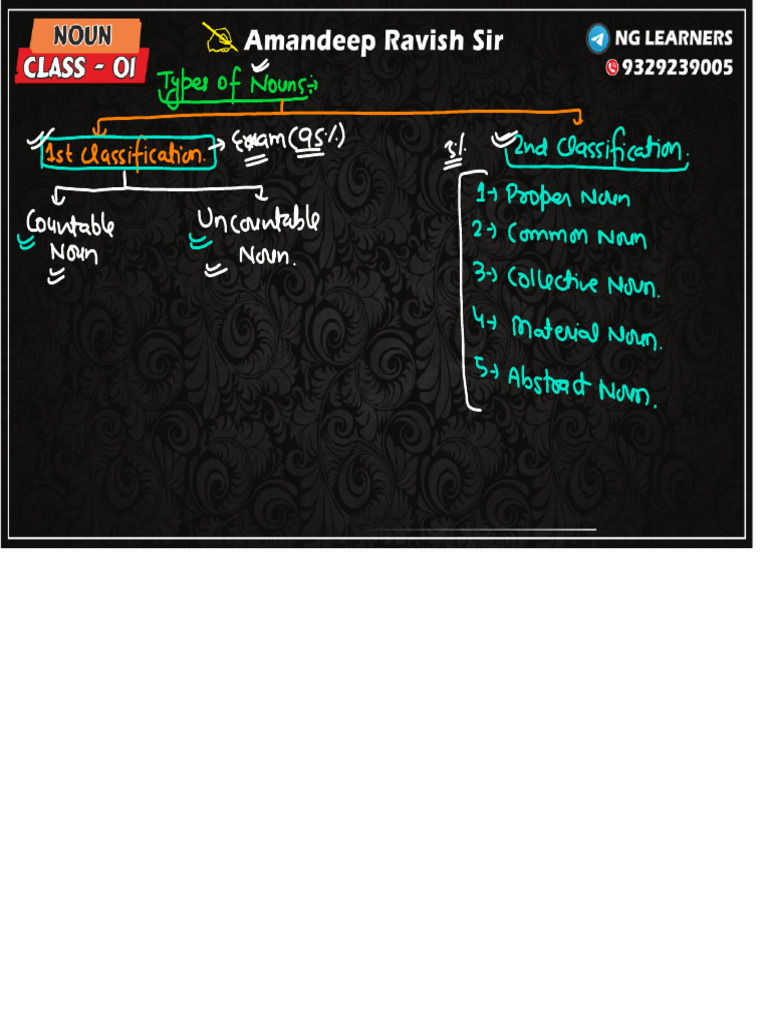 NOUN
CLASS - 01
Amandeep Ravish Sir
NG LEARNERS
9329239005
Types of Nouns:-
1st Classification. → Exam (95%)
Countable Noun
Uncountable Noun.
5% 2nd Classification.
1→ Proper Noun
2→ Common Noun
3→ Collective Noun.
4→ Material Noun.
5→ Abstract Noun.